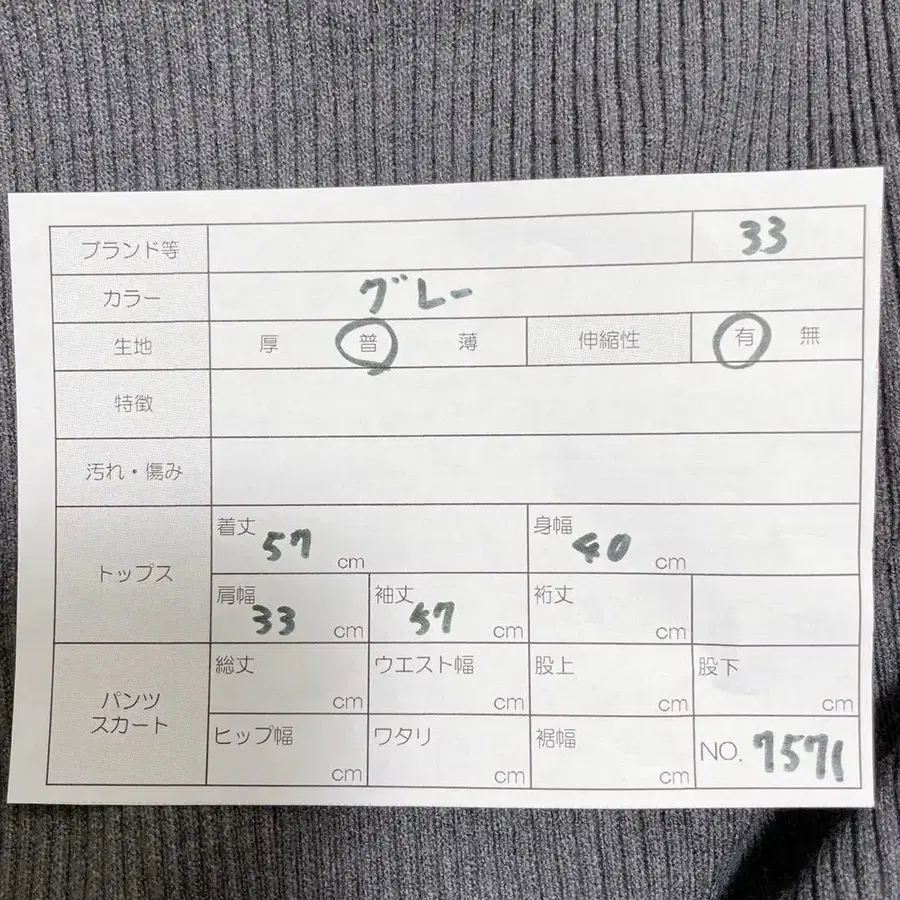 ブランド等 33
カラー グレー
生地 厚 普 薄 伸縮性 有 無
特徴
汚れ・傷み
トップス
着丈 57 cm 身幅 40 cm
肩幅 33 cm 袖丈 57 cm 裄丈 cm
パンツ
スカート
総丈 cm ウエスト幅 cm 股上 cm 股下 cm
ヒップ幅 cm ワタリ cm 裾幅 cm NO. 7571